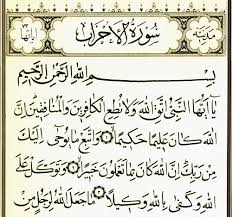 مدنية سُورَةُ الْأَحْزَابِ آياتها
بِسْمِ اللَّهِ الرَّحْمَنِ الرَّحِيمِ
يَا أَيُّهَا النَّبِيُّ اتَّقِ اللَّهَ وَلَا تُطِعِ الْكَافِرِينَ وَالْمُنَافِقِينَ إِنَّ
اللَّهَ كَانَ عَلِيمًا حَكِيمًا ۝ وَاتَّبِعْ مَا يُوحَى إِلَيْكَ
مِنْ رَبِّكَ إِنَّ اللَّهَ كَانَ بِمَا تَعْمَلُونَ خَبِيرًا ۝ وَتَوَكَّلْ عَلَى
اللَّهِ وَكَفَى بِاللَّهِ وَكِيلًا ۝ مَا جَعَلَ اللَّهُ لِرَجُلٍ مِنْ